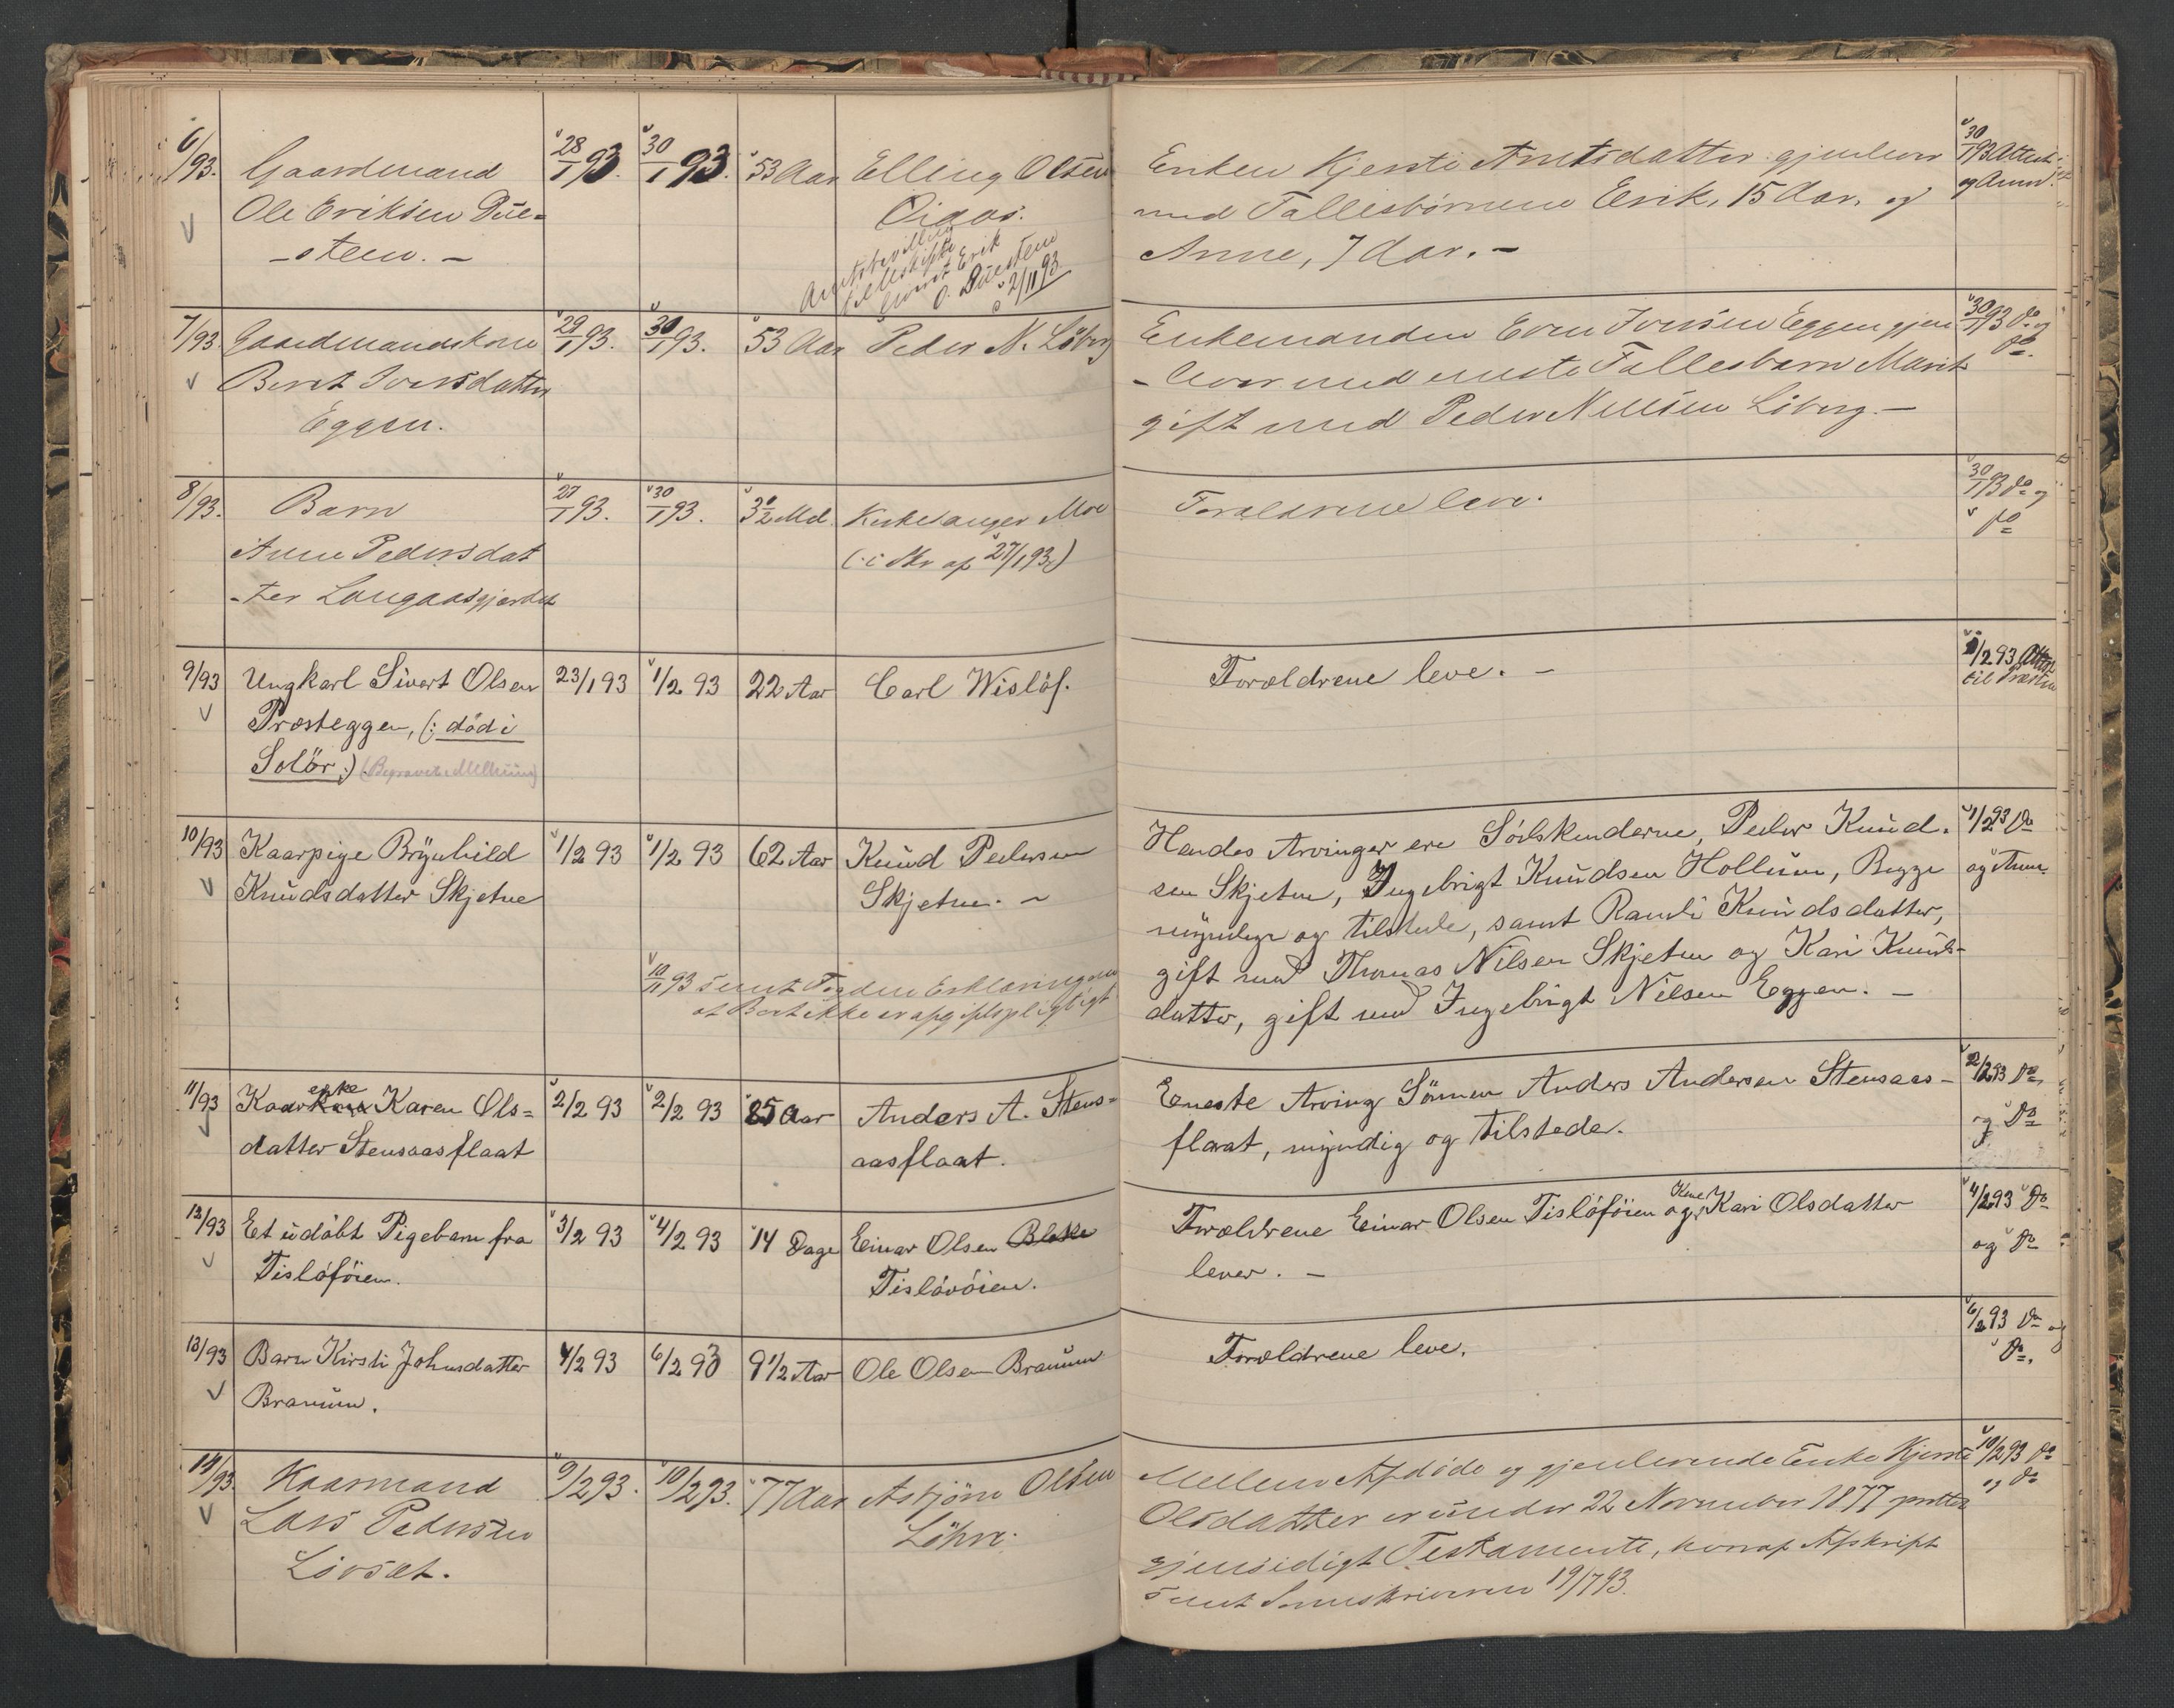 6/93. Gaardmand 28/1 93. 30/1 93. 53 Aar Elling Olsen Enken Kjersti Arntsdatter gjenlever 30/1 93 Attest
Ole Eriksen Due= med Fællesbørnene Erik, 15 Aar, og og Anm.
-sten. - Anne, 7 Aar. -
Amtsbevilling
Erik
O. Duesten
2/11 93
7/93 Gaardmandskone 29/1 93. 30/1 93. 53 Aar Peder N. Löberg Enkemanden Even Iversen Eggen gjen 30/1 93 Do og
Berit Iversdatter - lever med eneste Fællesbarn Marit Do.
Eggen. gift med Peder Nilsen Löberg. -
8/93. Barn 27/1 93. 30/1 93. 3 1/2 Md. Kirkesanger Moe Forældrene leve. 30/1 93 Do og
Anne Pedersdat (: i Skr af 27/1 93 :) Do
-ter Langaasgjerdet
9/93 Ungkarl Sivert Olsen 23/1 93 1/2 93 22 Aar Carl Wislöf. Forældrene leve. - 1/2 93 Attest
Præsteggen, (: död i til Præsten
Solör :) (Begravet i Melhuus)
10/93 Kaarpige Brynhild 1/2 93 1/2 93 62 Aar Knud Pedersen Hendes Arvinger ere Södskenderne, Peder Knud- 1/2 93 Do
Knudsdatter Skjetne Skjetne. - sen Skjetne, Ingebrigt Knudsen Hollum, Begge og Anm.
myndige og tilstede, samt Randi Knudsdatter,
10/11 93 sendt Fogden Erklæring om gift med Thomas Nilsen Skjetne og Kari Knuds-
at Boet ikke er afgiftspligtigt datter, gift med Ingebrigt Nilsen Eggen. -
11/93 Kaarenke Karen Ols= 2/2 93 2/2 93 85 Aar Anders A. Stens= Eneste Arving Sönnen Anders Andersen Stensaas- 2/2 93 Do
datter Stensaasflaat aasflaat. flaat, myndig og tilstede. og Do
12/93 Et udöbt Pigebarn fra 3/2 93 4/2 93 14 Dage Einar Olsen Blokke Forældrene Einar Olsen Tislöföien og Kone Kari Olsdatter 4/2 93 Do
Tislöföien. Tislövöien. lever. - og Do
13/93 Barn Kirsti Johnsdatter 4/2 93 6/2 93 9 1/2 Aar Ole Olsen Branum Forældrene leve. 6/2 93 Do og
Branum. Do.
14/93. Kaarmand 9/2 93. 10/2 93. 77 Aar Asbjörn Olsen Mellem Afdöde og gjenlevende Enke Kjersti 10/2 93 Do
Lars Pedersen Löhre. Olsdatter er under 22 November 1877 oprettet og Do
Lövset. gjensidigt Testamente, hvoraf Afskrift
sendt Sorenskriveren 19/7 93.